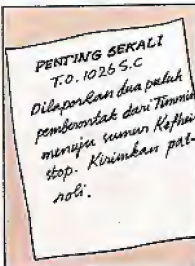 PENTING SEKALI
T.O. 1026 S.C
Dilaporkan dua puluh
pemberontak dari Timmin
menuju sumur Kefheir
stop. Kirimkan pat-
roli.